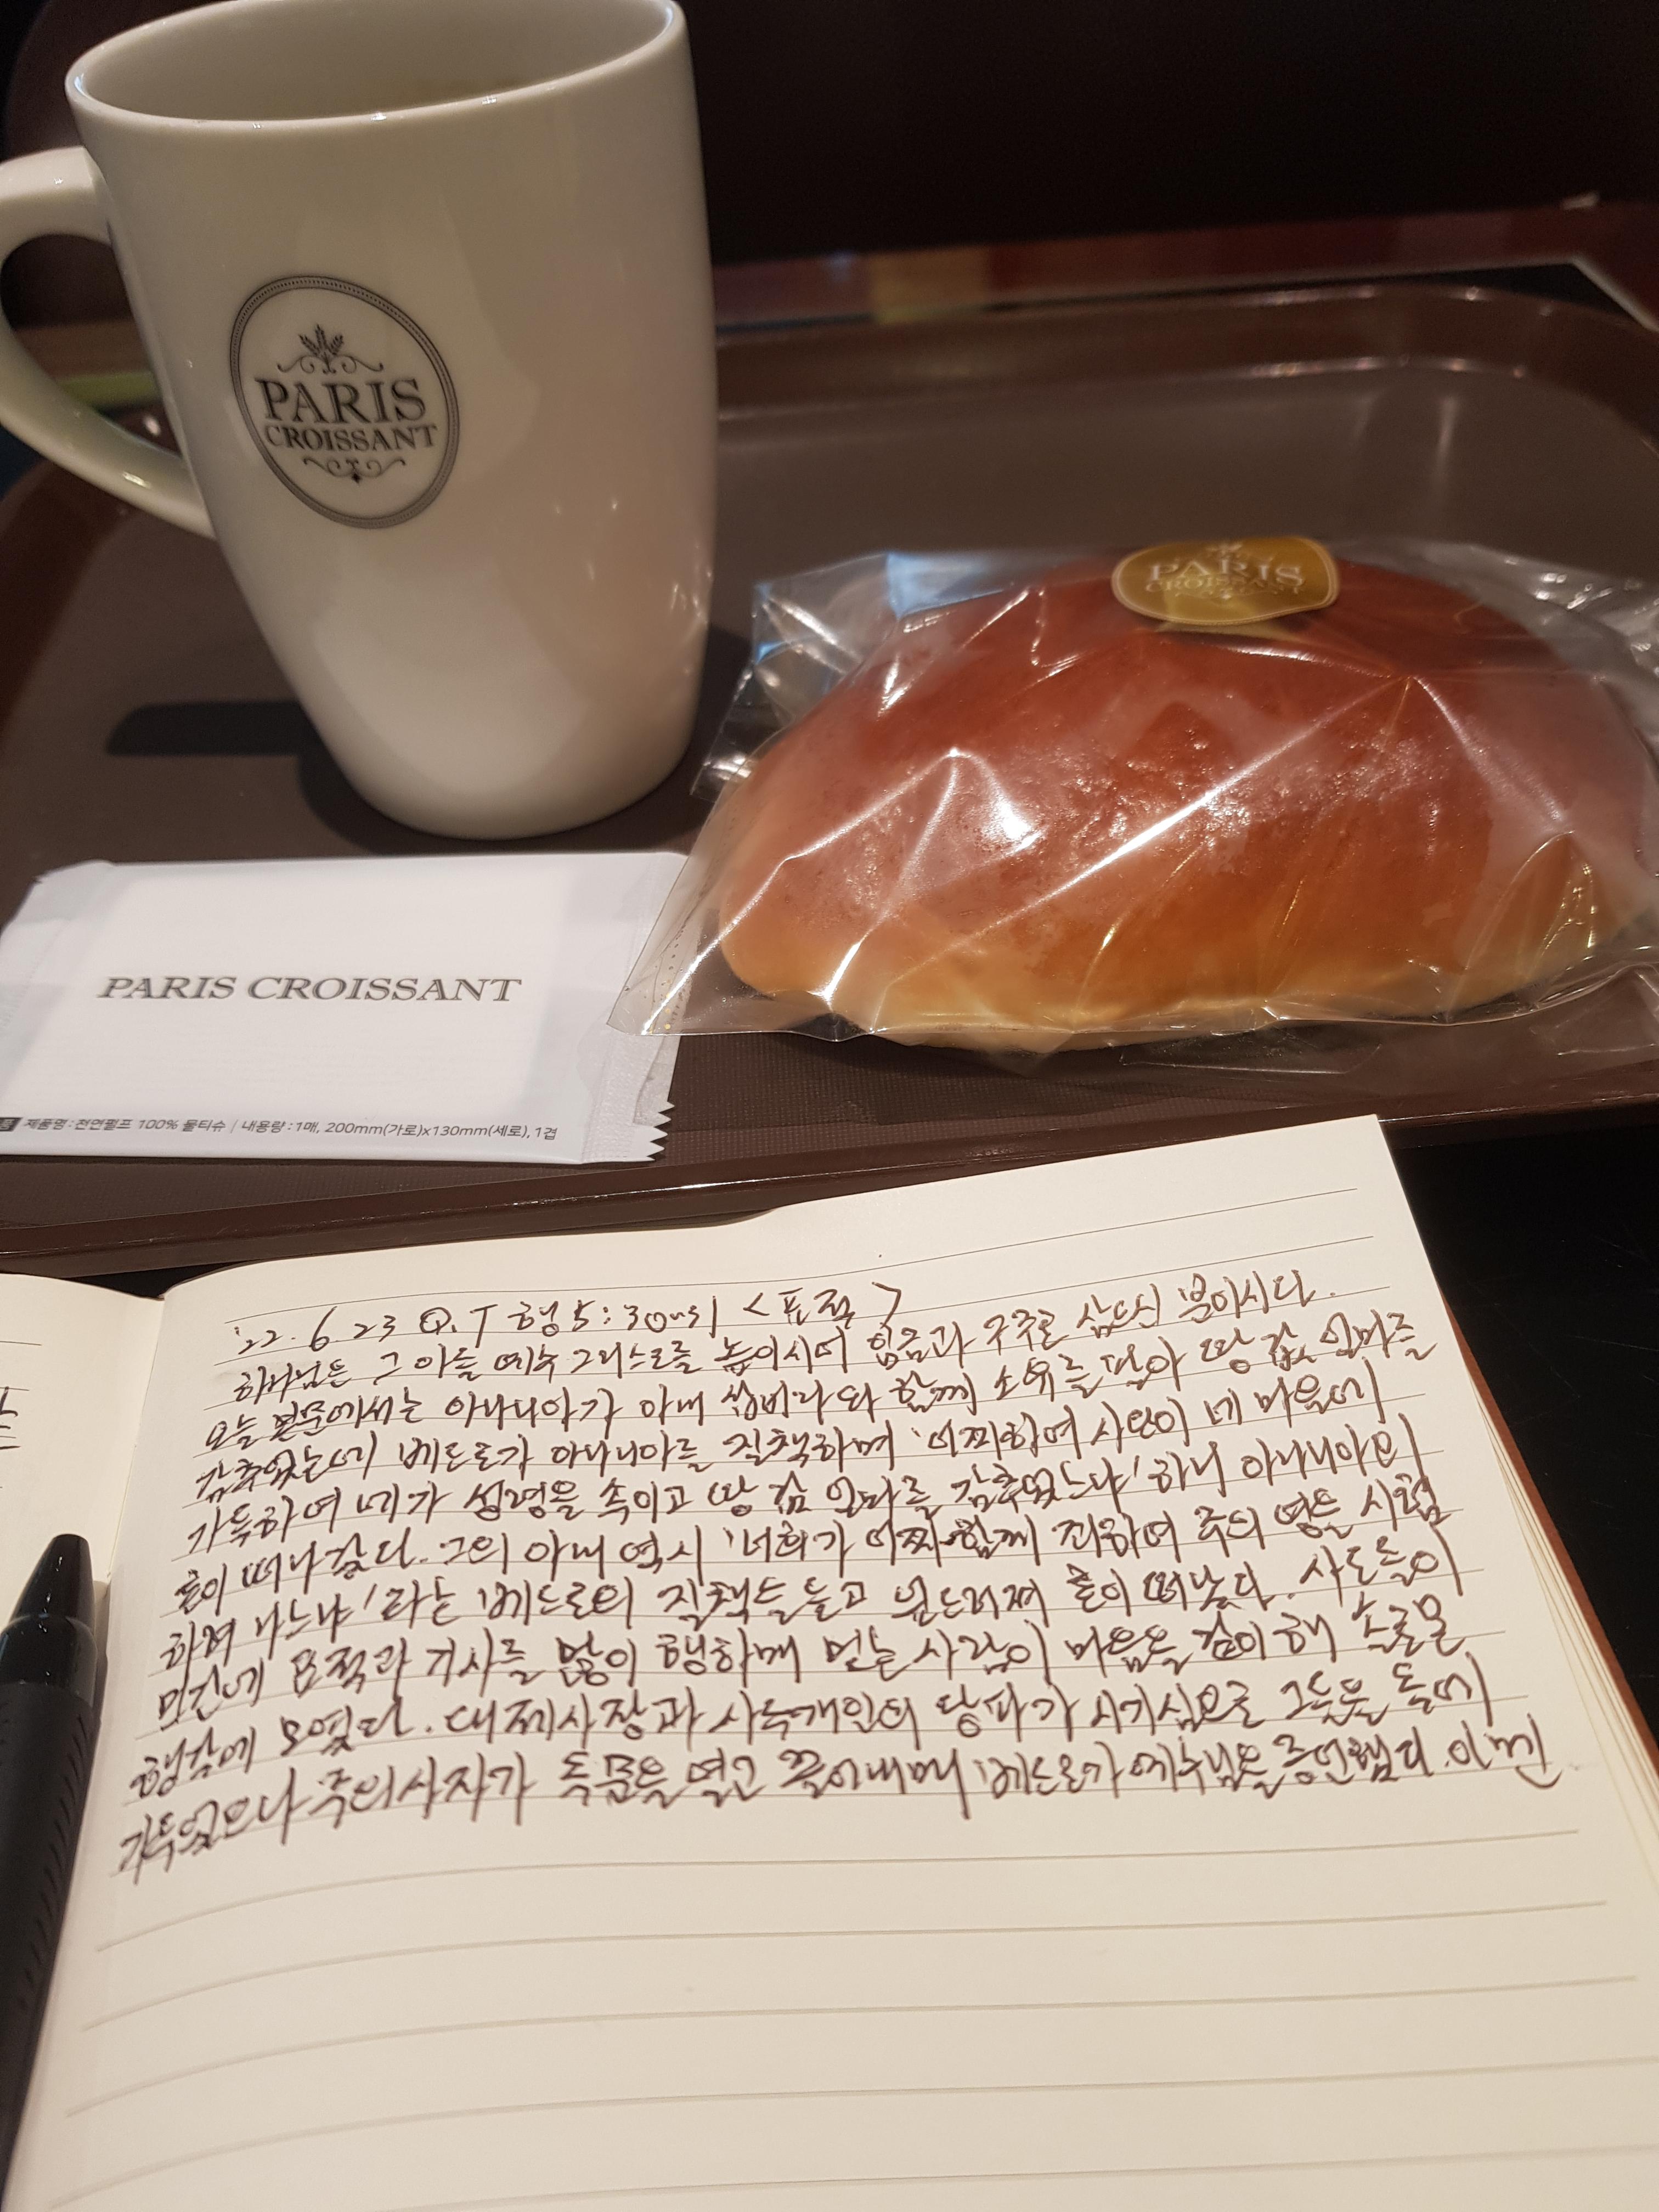 PARIS
CROISSANT
PARIS
CROISSANT
PARIS CROISSANT
제품명 : 천연펄프 100% 물티슈 | 내용량 : 1매, 200mm(가로)x130mm(세로), 1겹
'22. 6. 23 Q.T 행5:30 <표적>
하나님은 그 아들 예수 그리스도를 높이시어 임금과 구주로 삼으신 분이시다.
오늘 본문에서는 아나니아가 아내 삽비라와 함께 소유를 팔아 땅 값 얼마를
감추었는데 베드로가 아나니아를 질책하며 '어찌하여 사탄이 네 마음에
가득하여 네가 성령을 속이고 땅 값 얼마를 감추었느냐' 하니 아나니아의
혼이 떠나갔다. 그의 아내 역시 '너희가 어찌 함께 꾀하여 주의 영을 시험
하려 하느냐'라는 베드로의 질책을 듣고 혼이 떠났다. 사도들이
민간에 표적과 기사를 많이 행하매 믿는 사람이 마음을 같이 해 솔로몬
행각에 모였다. 대제사장과 사두개인의 당파가 시기심으로 그들을 옥에
가두었으나 주의 사자가 옥문을 열고 끌어내매 베드로가 예수님을 증언했다. 아멘